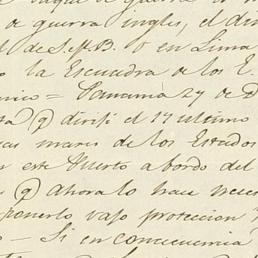 de guerra ingles, el di
l de S.M.B. O en Lima
o la Escuadra de los E.
nico = Panamá 27 de D
ta (q dirifi el 17 ultimo
cas mares de los Estados
n este Puerto a bordo del
s (q) ahora lo hace nece
ponerlo vajo proteccion
o — Si en consecuencia